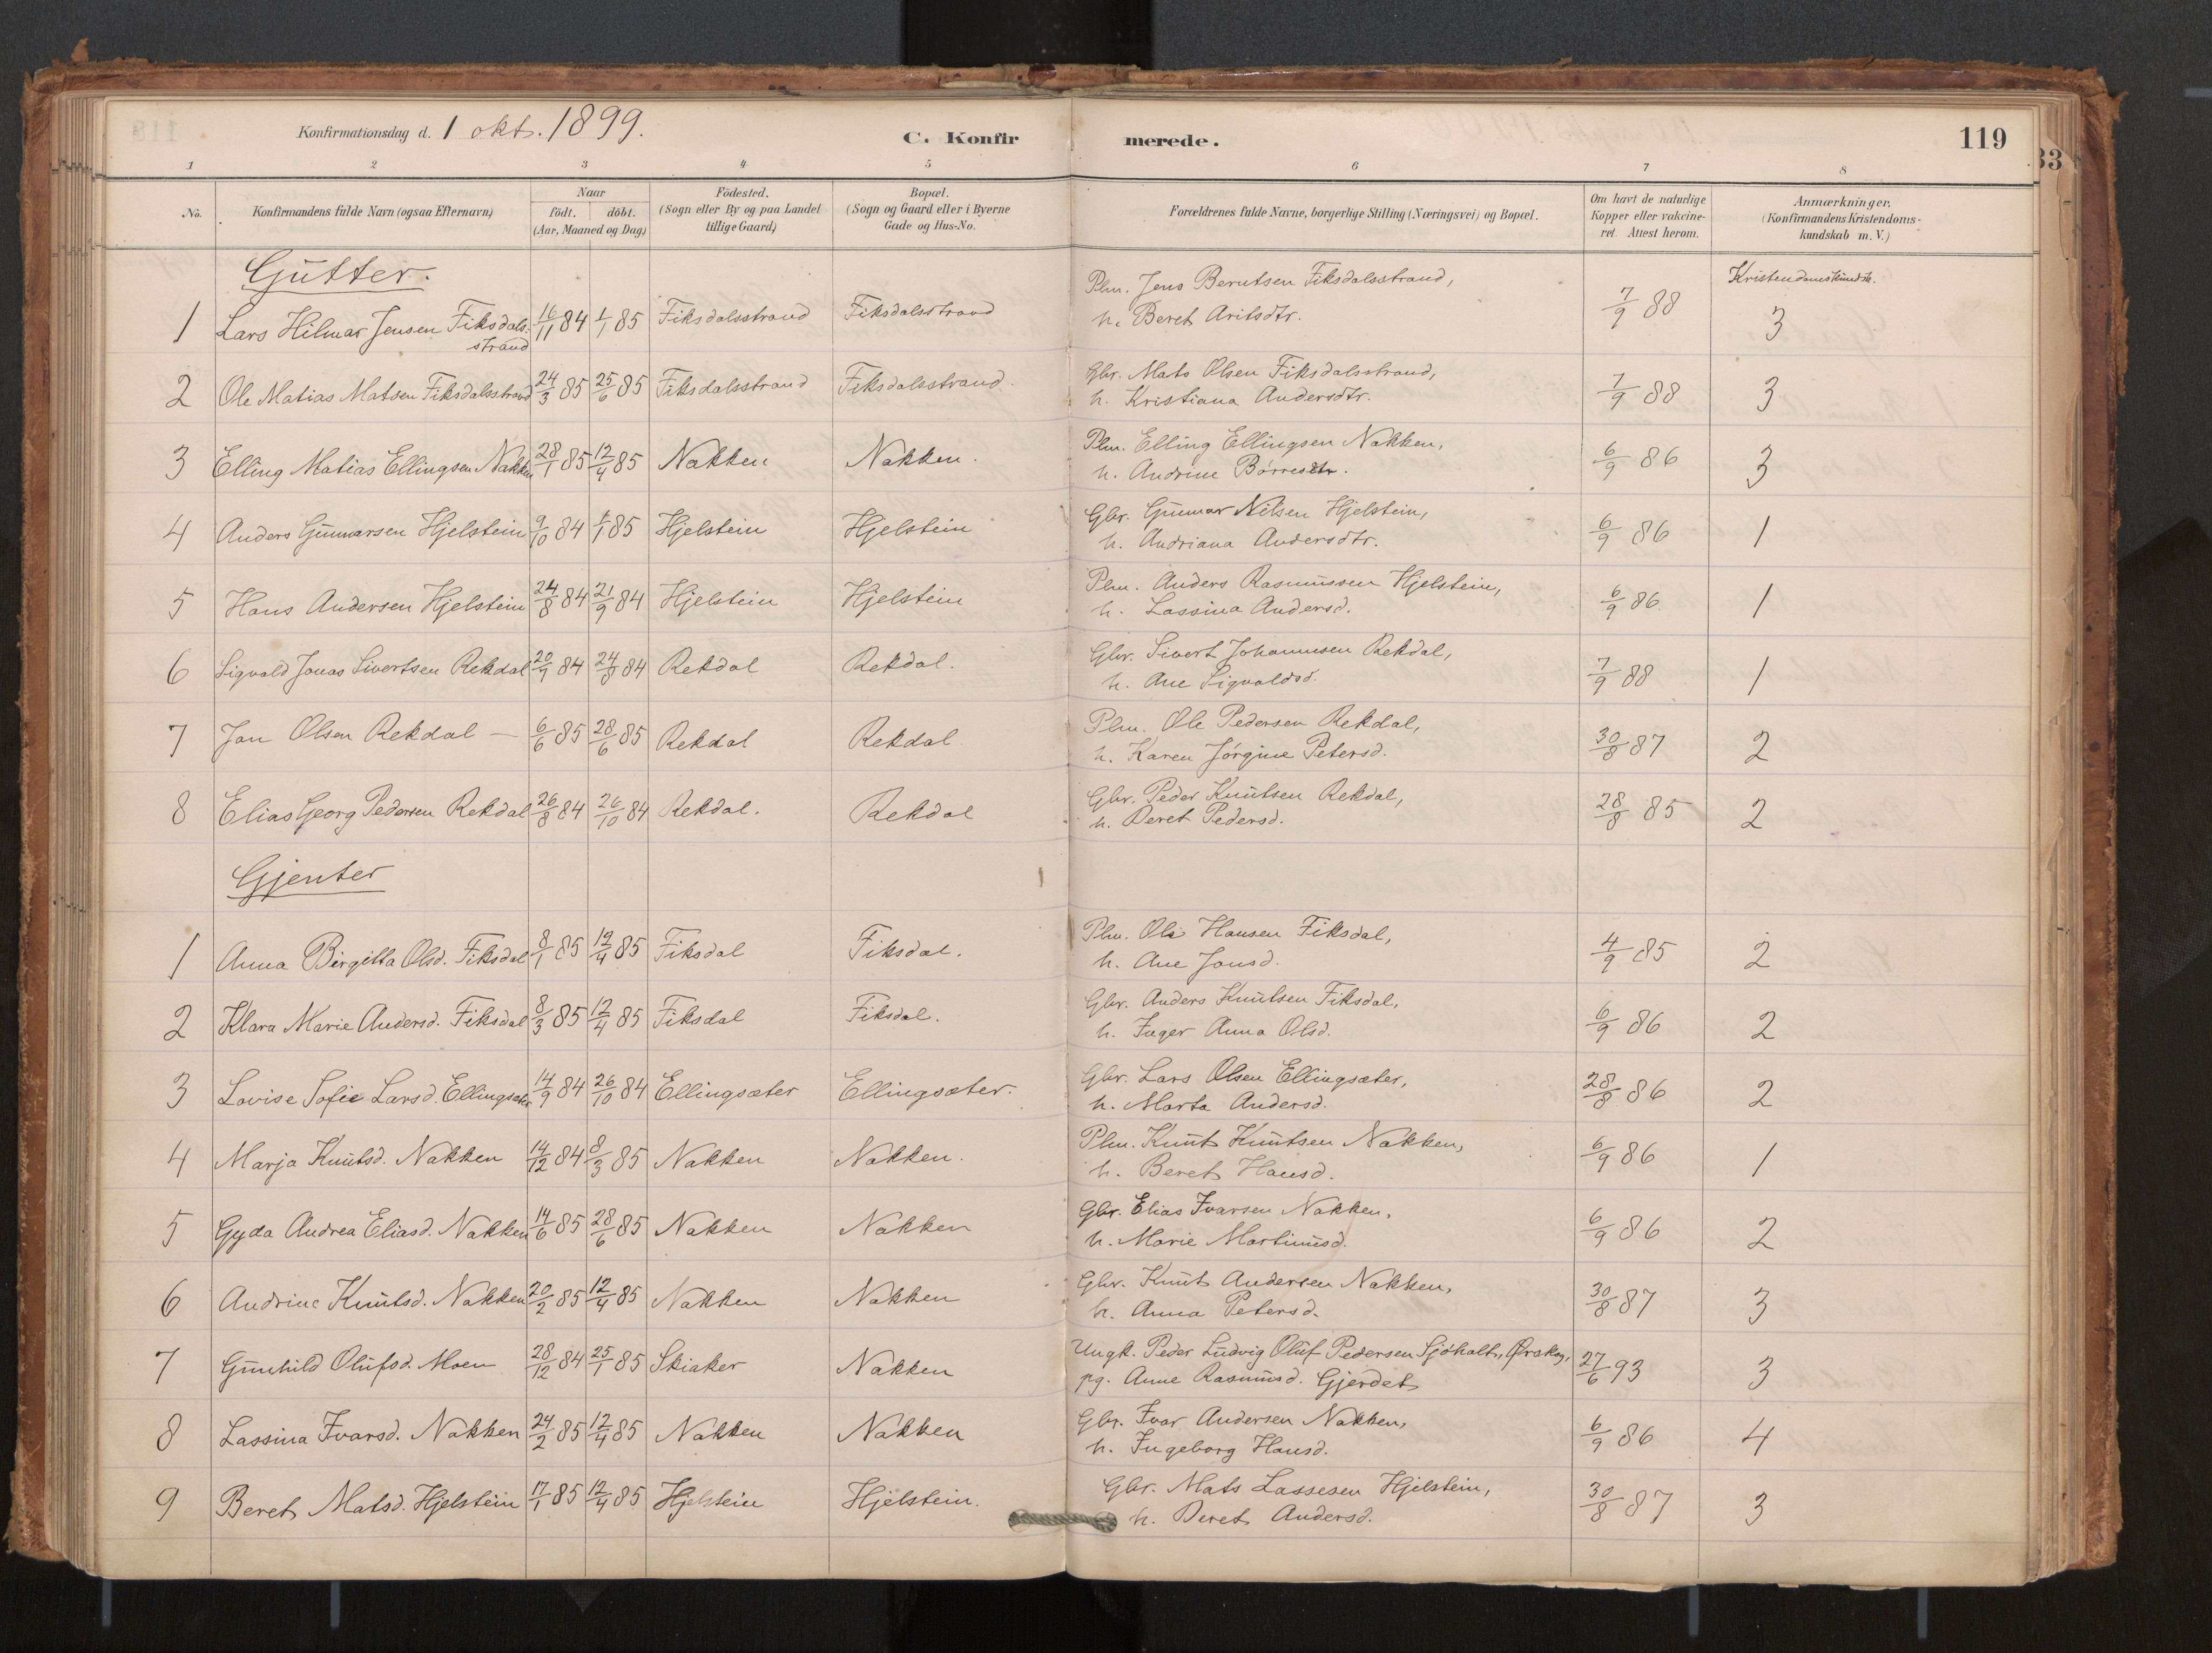 Konfirmationsdag d. 1 okt. 1899. C. Konfirmerede. 119
33
1 2 3 4 5 6 7 8
No. Konfirmandens fulde Navn (ogsaa Efternavn) Naar födt. döbt. (Aar, Maaned og Dag) Födested. (Sogn eller By og paa Landet tillige Gaard) Bopæl. (Sogn og Gaard eller i Byerne Gade og Hus-No. Forældrenes fulde Navne, borgerlige Stilling (Næringsvei) og Bopæl. Om havt de naturlige Kopper eller vakcineret. Attest herom. Anmærkninger. (Konfirmandens Kristendomskundskab m.V.)
Gutter. Kristendomskundsk.
1 Lars Hilmar Jensen Fiksdalsstrand 16/11 84 1/1 85 Fiksdalsstrand Fiksdalsstrand Plm. Jens Berntsen Fiksdalsstrand, 7/9 88 3
h. Beret Aritsdtr.
2 Ole Matias Matsen Fiksdalsstrand 24/3 85 25/6 85 Fiksdalsstrand Fiksdalsstrand. Gbr. Mats Olsen Fiksdalsstrand, 7/9 88 3
h. Kristiana Andersdtr.
3 Elling Matias Ellingsen Nakken 28/1 85 12/4 85 Nakken Nakken. Plm. Elling Ellingsen Nakken, 6/9 86 3
h. Andrine Børresdtr.
4 Anders Gunnarsen Hjelstein 9/10 84 1/1 85 Hjelstein Hjelstein Gbr. Gunnar Nilsen Hjelstein, 6/9 86 1
h. Andriana Andersdtr.
5 Hans Andersen Hjelstein 24/8 84 21/9 84 Hjelstein Hjelstein Plm. Anders Rasmussen Hjelstein, 6/9 86 1
h. Lassina Andersd.
6 Sigvald Jonas Sivertsen Rekdal 20/7 84 24/8 84 Rekdal Rekdal. Gbr. Sivert Johannesen Rekdal, 7/9 88 1
h. Ane Sigvaldsd.
7 Jan Olsen Rekdal — 6/6 85 28/6 85 Rekdal Rekdal Plm. Ole Pedersen Rekdal, 30/8 87 2
h. Karen Jørgine Petersd.
8 Elias Georg Pedersen Rekdal 26/8 84 26/10 84 Rekdal. Rekdal Gbr. Peder Knutsen Rekdal, 28/8 85 2
h. Beret Pedersd.
Gjenter
1 Anna Birgitta Olsd. Fiksdal 8/1 85 12/4 85 Fiksdal Fiksdal. Plm. Ole Hansen Fiksdal, 4/9 85 2
h. Ane Jonsd.
2 Klara Marie Andersd. Fiksdal 8/3 85 12/4 85 Fiksdal Fiksdal. Gbr. Anders Knutsen Fiksdal, 6/9 86 2
h. Inger Anna Olsd.
3 Lovise Sofie Larsd. Ellingsæter 14/9 84 26/10 84 Ellingsæter Ellingsæter. Gbr. Lars Olsen Ellingsæter, 28/8 86 2
h. Marta Andersd.
4 Marja Knutsd. Nakken 14/12 84 8/3 85 Nakken Nakken. Plm. Knut Knutsen Nakken, 6/9 86 1
h. Beret Hansd.
5 Gyda Andrea Eliasd. Nakken 14/6 85 28/6 85 Nakken Nakken Gbr. Elias Ivarsen Nakken, 6/9 86 2
h. Marie Martinusd.
6 Andrine Knutsd. Nakken 20/2 85 12/4 85 Nakken Nakken Gbr. Knut Andersen Nakken, 30/8 87 3
h. Anna Petersd.
7 Gunhild Olufsd. Moen 28/12 84 25/1 85 Skiaker Nakken Ungk. Peder Ludvig Oluf Pedersen Sjøholt, Ørskog, 27/6 93 3
pg. Anne Rasmusd. Gjerdet
8 Lassina Ivarsd. Nakken 24/2 85 12/4 85 Nakken Nakken Gbr. Ivar Andersen Nakken, 6/9 86 4
h. Ingeborg Hansd.
9 Beret Matsd. Hjelstein 17/1 85 12/4 85 Hjelstein Hjelstein. Gbr. Mats Lassesen Hjelstein, 30/8 87 3
h. Beret Andersd.